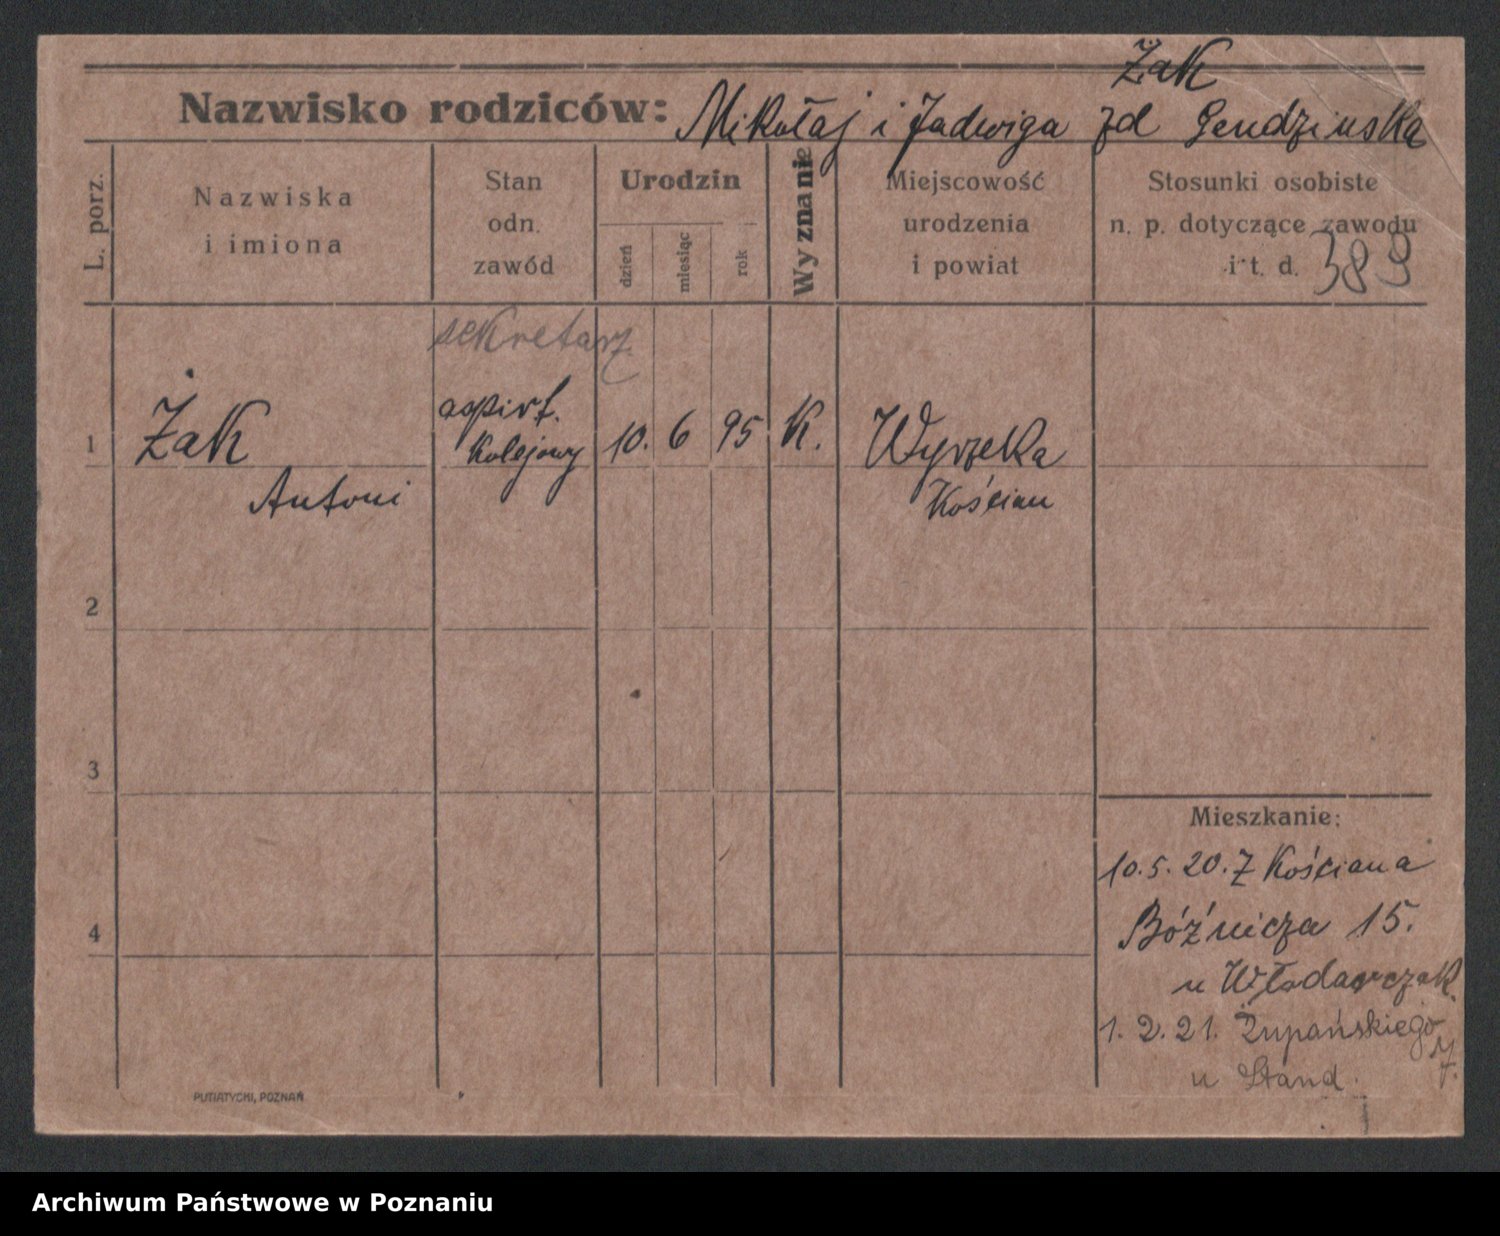 Żak
Nazwisko rodziców: Mikołaj i Jadwiga zd Gendzinska
L. porz.
Nazwiska
i imiona
Stan
odn.
zawód
Urodzin
dzień
miesiąc
rok
Wyznanie
Miejscowość
urodzenia
i powiat
Stosunki osobiste
n. p. dotyczące zawodu
i t. d. 389
sekretarz
1 Żak aspirt. 10. 6 95 K. Wyrzeka
kolejowy
Antoni Kościan
2
3
4
Mieszkanie:
10.5.20. Z Kościana
Bóźnicza 15.
u Włodarczak.
1.2.21. Żupańskiego
u Stand.
PUTIATYCKI, POZNAŃ
Archiwum Państwowe w Poznaniu